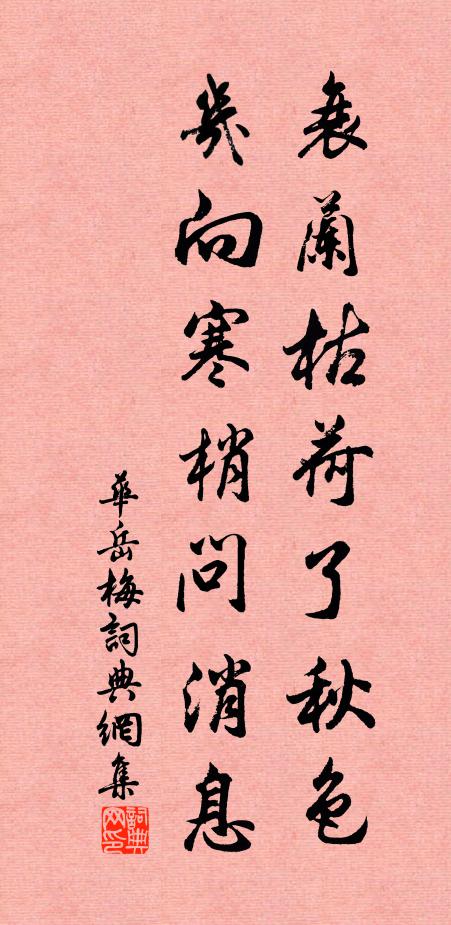 衰蘭枯荷了秋色
幾向寒梢問消息
華岳梅詞典網集
詞典网印